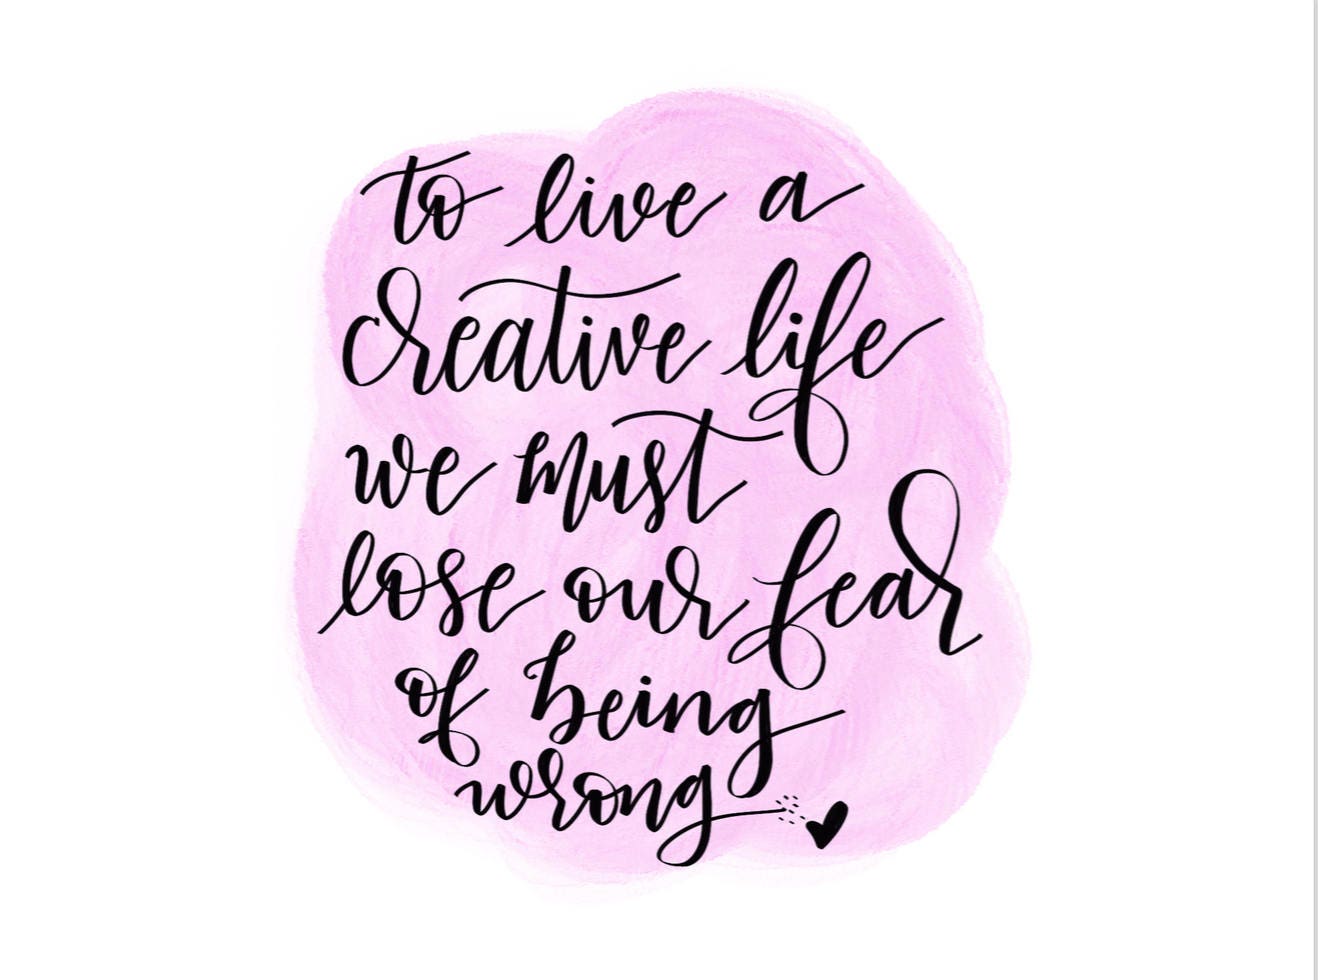 to live a
creative life
we must
lose our fear
of being
wrong